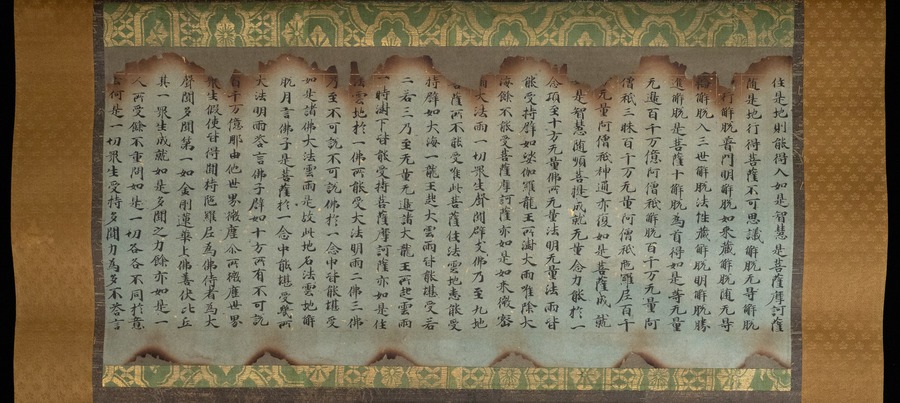 住是地則能得入如是智慧是菩薩摩訶薩
隨是地行得菩薩不可思議解脫无㝵解脫
行解脫普門明解脫如來藏解脫隨无㝵
輪解脫入三世解脫法性藏解脫明解脫勝
進解脫是菩薩十解脫為首得如是等无量
无邊百千万億阿僧祇解脫百千万无量阿
僧祇三昧百千万无量阿僧祇陁羅尼百千
无量阿僧祇神通亦復如是菩薩成就
是智慧隨順菩提成就无量念力能於一
念頃至十方无量佛所无量法明法雨皆
能受持譬如娑伽羅龍王所澍大雨唯除大
海餘不能受菩薩摩訶薩亦如是如來微密
雨大法雨一切衆生聲聞辟支佛乃至九地
菩薩所不能受唯此菩薩住法雲地悉能受
持譬如大海一龍王起大雲雨皆能堪受若
二若三乃至无量无邊諸大龍王所起雲雨
一時澍下皆能受持菩薩摩訶薩亦如是住
法雲地於一佛所能受大法明雨二佛三佛
乃至不可說不可說佛於一念中皆能堪受
如是諸佛大法雲雨是故此地名法雲地解
脫月言佛子是菩薩於一念中能堪受幾所
大法明雨荅言佛子譬如十方所有不可說
百千万億那由他世界微塵尒所微塵世界
衆生假使皆得聞持陁羅尼為佛侍者為大
聲聞多聞第一如金剛蓮華上佛善伏比丘
其一衆生成就如是多聞之力餘亦如是一
人所受餘不重問如是一切各各不同於意
云何是一切衆生受持多聞力為多不荅言